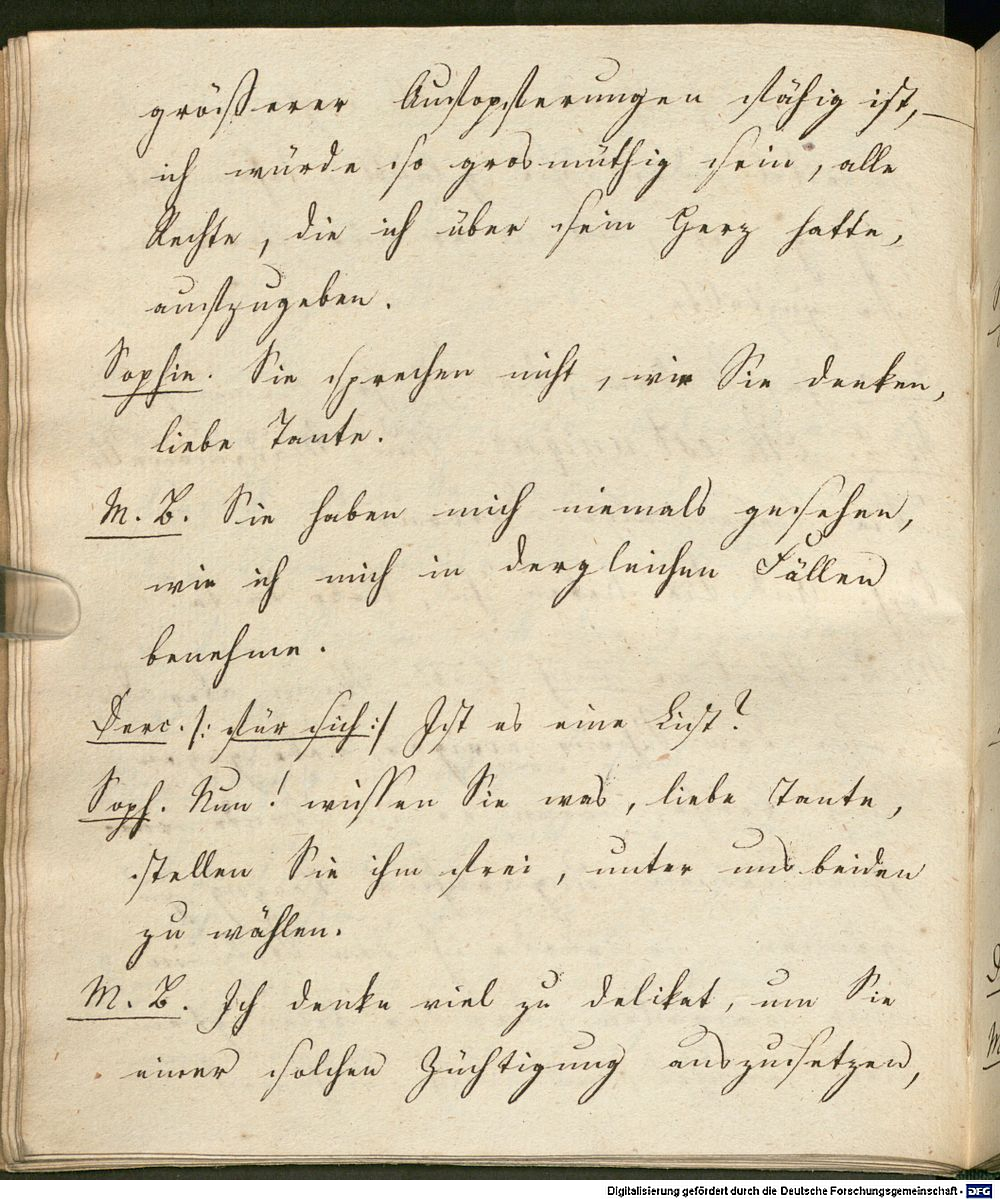 größerer Aufopferungen fähig ist, —
ich würde so grosmüthig sein, alle
Rechte, die ich über sein Herz hatte,
aufzugeben.
Sophie. Sie sprechen nicht, wie Sie denken,
liebe Tante.
M. B. Sie haben mich niemals gesehen,
wie ich mich in dergleichen Fällen
benehme.
Derc. /: für sich :/ Ist es eine List?
Soph. Nun! wissen Sie was, liebe Tante,
stellen Sie ihm frei, unter uns beiden
zu wählen.
M. B. Ich denke viel zu delikat, um Sie
einer solchen Züchtigung auszusetzen,
Digitalisierung gefördert durch die Deutsche Forschungsgemeinschaft - DFG